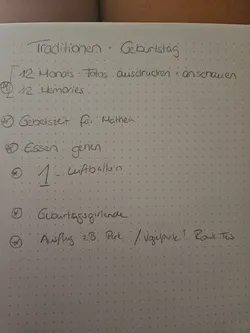 Traditionen - Geburtstag
12 Monats Fotos ausdrucken + anschauen
12 Memories
Gebetszeit für
Essen gehen
1 - Luftballon
Geburtstagsgirlande
Ausflug z.B. Park / Vogelpark!